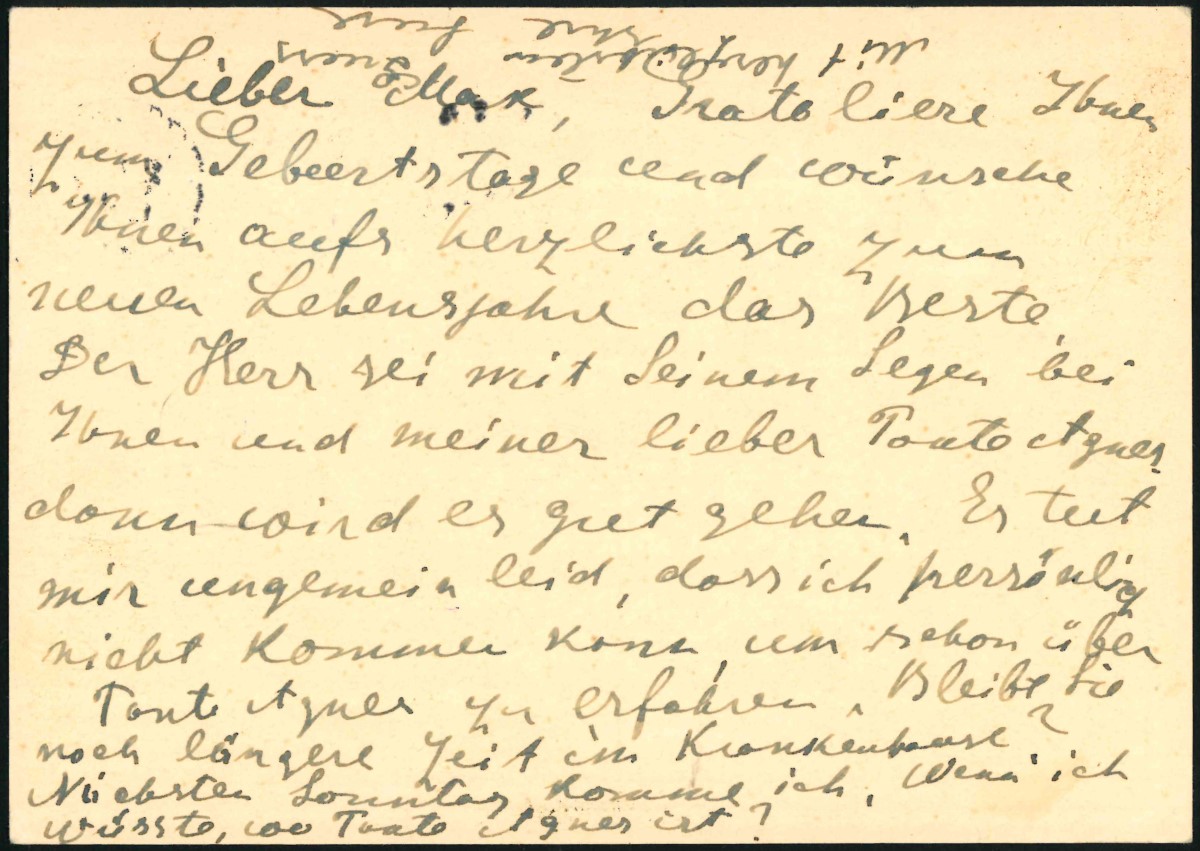 Lieber Max, Gratuliere Ihnen
zum Geburtstage und wünsche
Ihnen aufs herzlichste zum
neuen Lebensjahre das Beste.
Der Herr sei mit Seinem Segen bei
Ihnen und meiner lieber Tante Agnes,
dann wird es gut gehen. Es tut
mir ungemein leid, dass ich persönlich
nicht kommen kann, um schon über
Tante Agnes zu erfahren. Bleibt Sie
noch längere Zeit im Krankenhause?
Nächsten Sonntag komme ich, wenn ich
wüsste, wo Tante Agnes ist?
Mit herzlichsten
Ihre